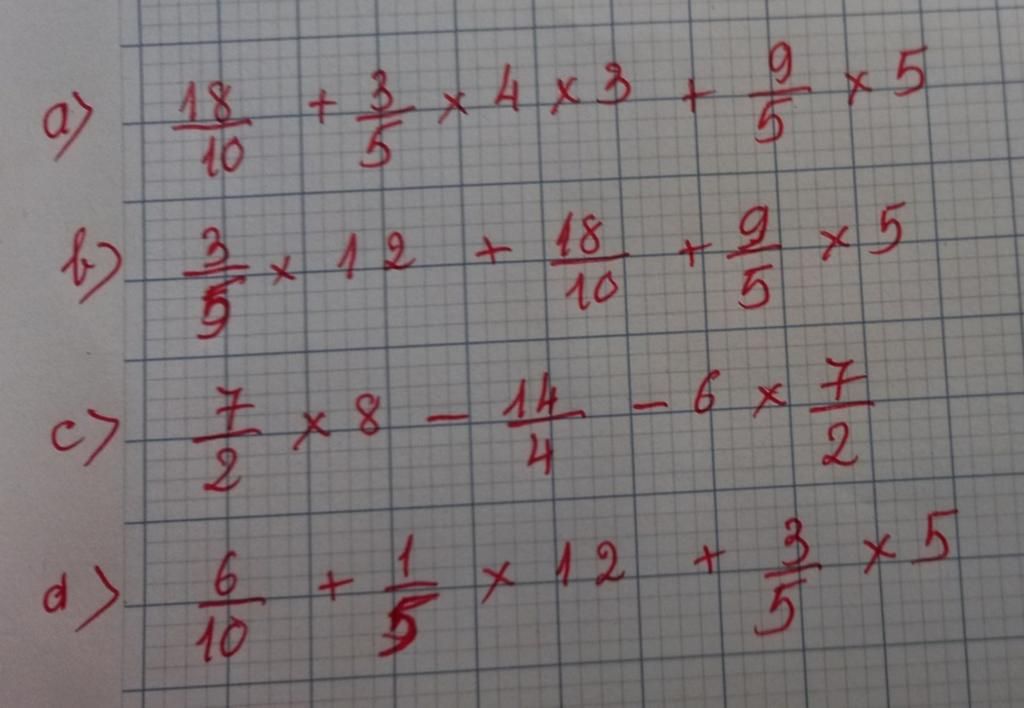 a) 18/10 + 3/5 × 4 × 3 + 9/5 × 5
b) 3/5 × 12 + 18/10 + 9/5 × 5
c) 7/2 × 8 − 14/4 − 6 × 7/2
d) 6/10 + 1/5 × 12 + 3/5 × 5